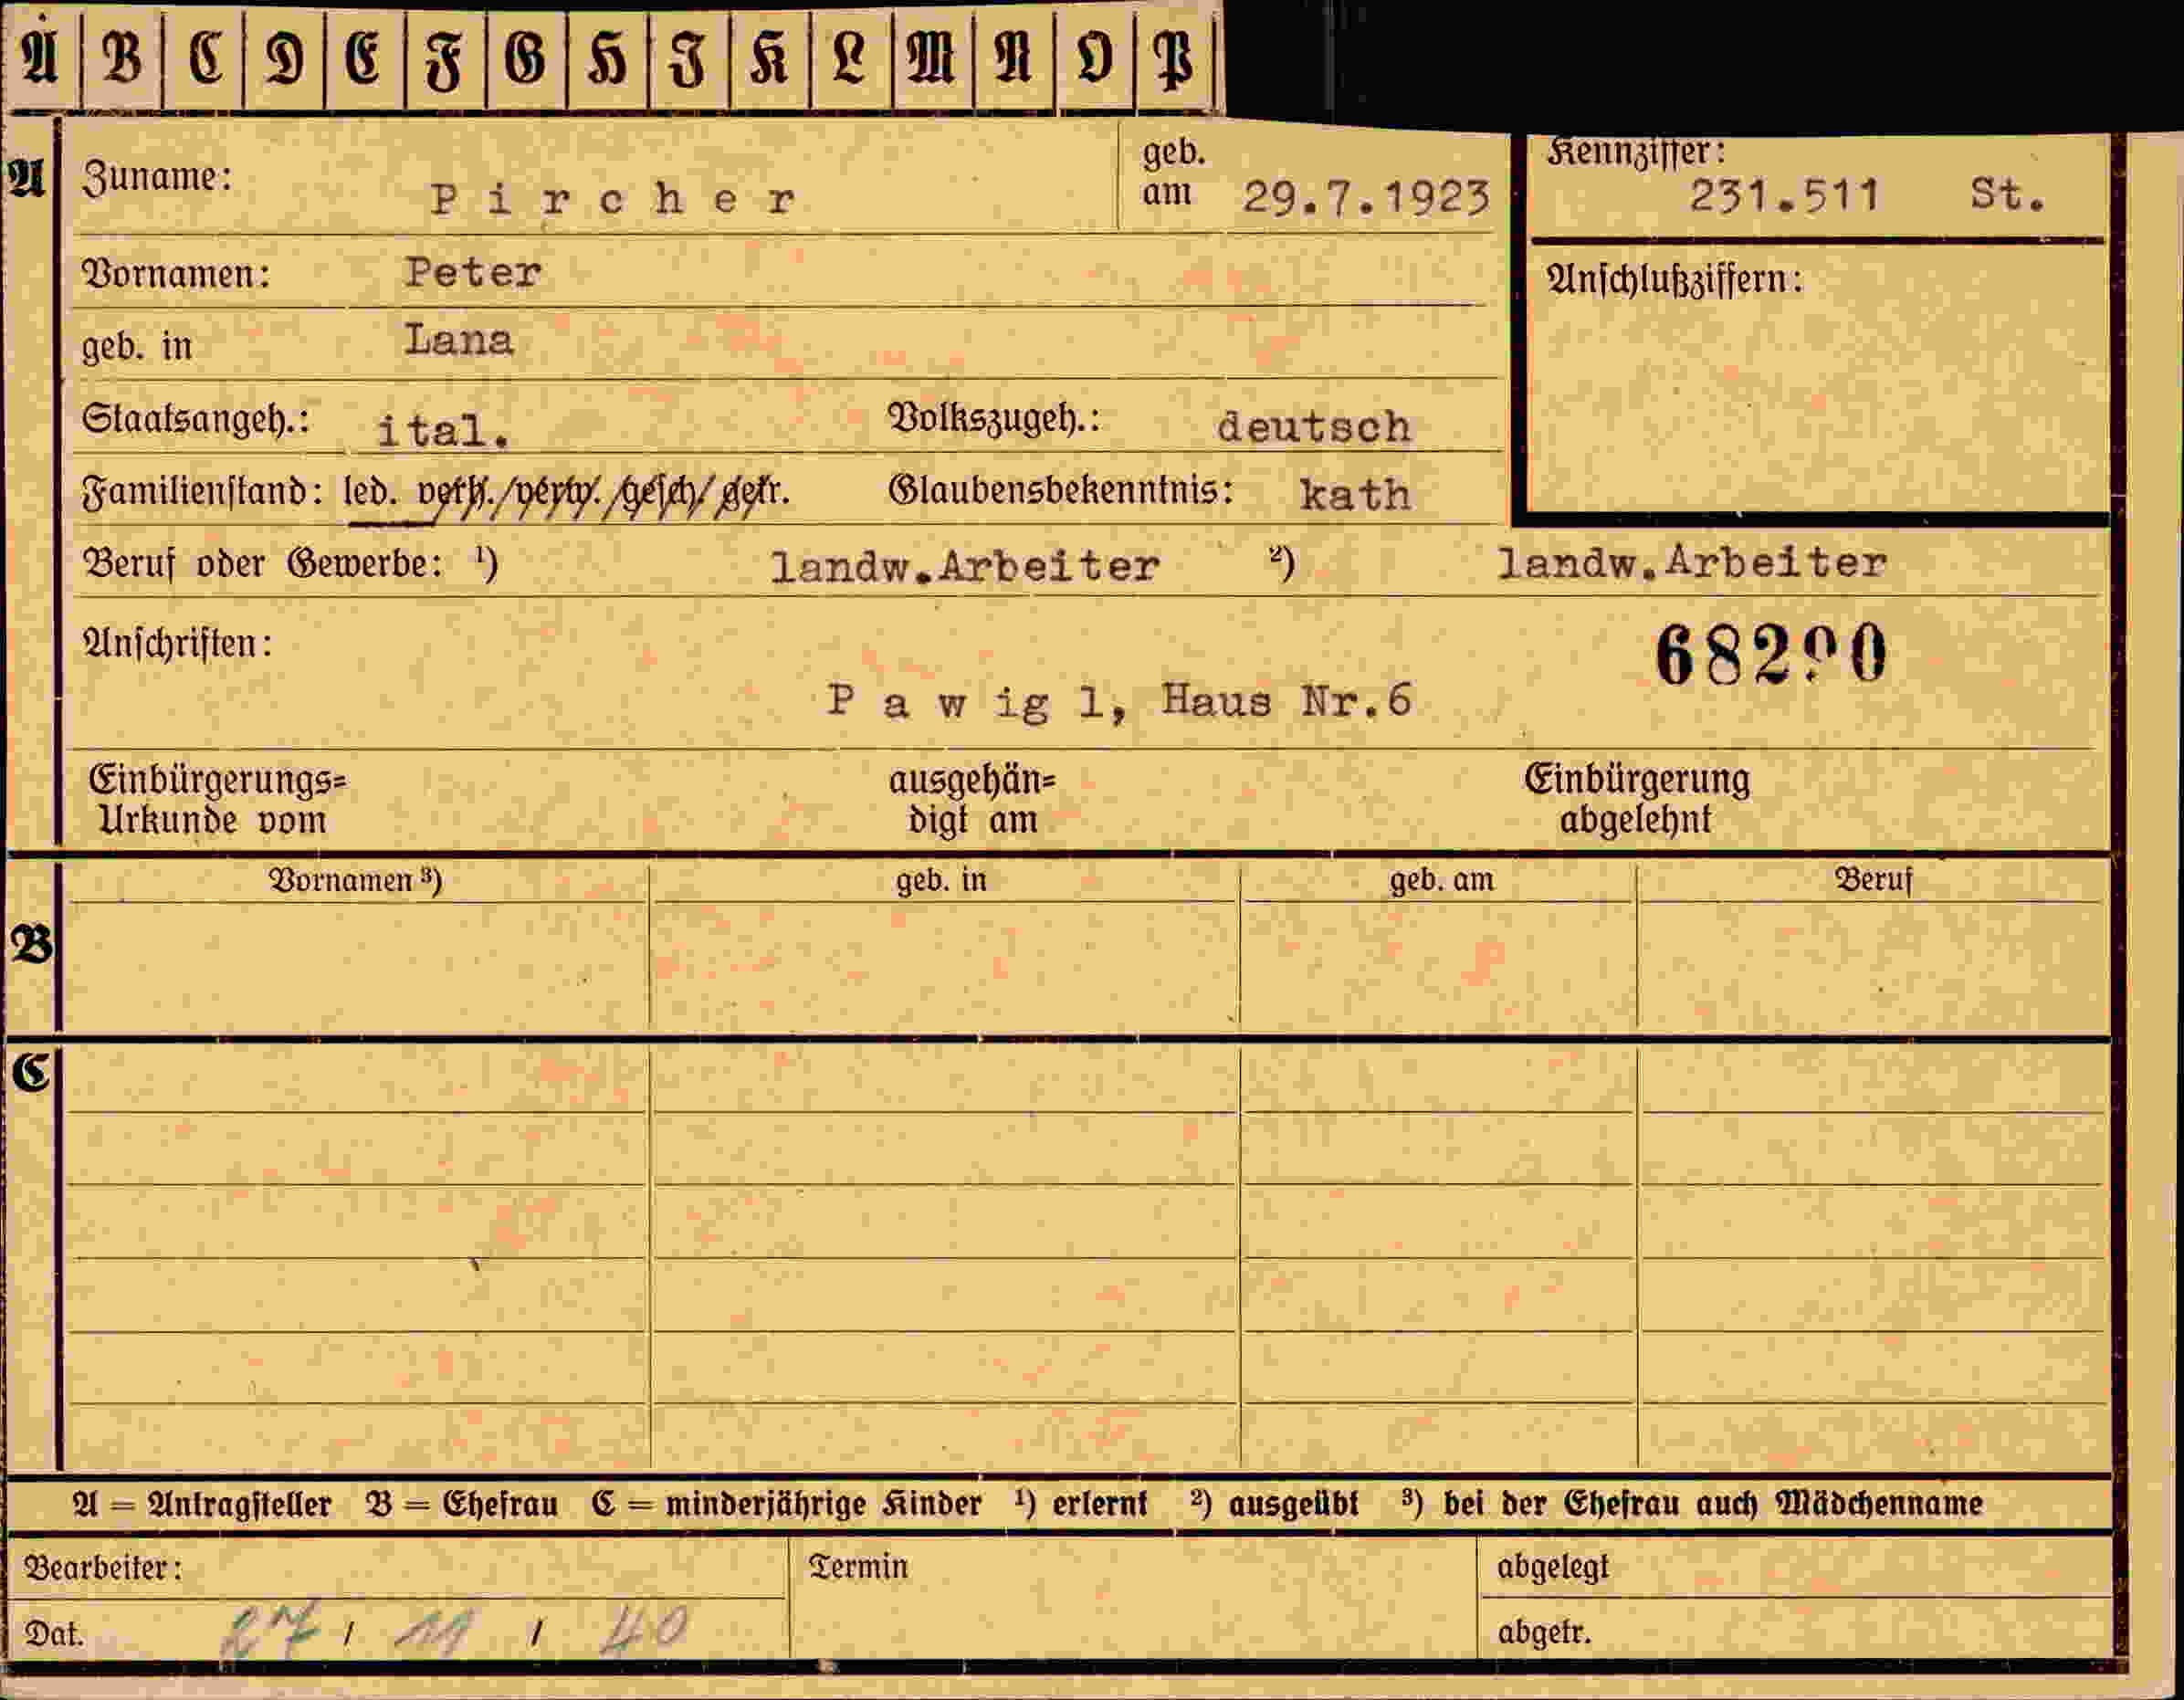 A B C D E F G H I K L M N O P
A Zuname: Pircher geb. am 29.7.1923 Kennziffer: 231.511 St.
Vornamen: Peter Anschlußziffern:
geb. in Lana
Staatsangeh.: ital. Volkszugeh.: deutsch
Familienstand: led. verh./verw./gesch/getr. Glaubensbekenntnis: kath
Beruf oder Gewerbe: ¹) landw.Arbeiter ²) landw.Arbeiter
Anschriften:
P a w ig l, Haus Nr.6
Einbürgerungs= Urkunde vom ausgehän= digt am Einbürgerung abgelehnt
Vornamen ³) geb. in geb. am Beruf
B
C
A = Antragsteller B = Ehefrau C = minderjährige Kinder ¹) erlernt ²) ausgeübt ³) bei der Ehefrau auch Mädchenname
Bearbeiter: Termin abgelegt
Dat. 27 / 11 / 40 abgetr.